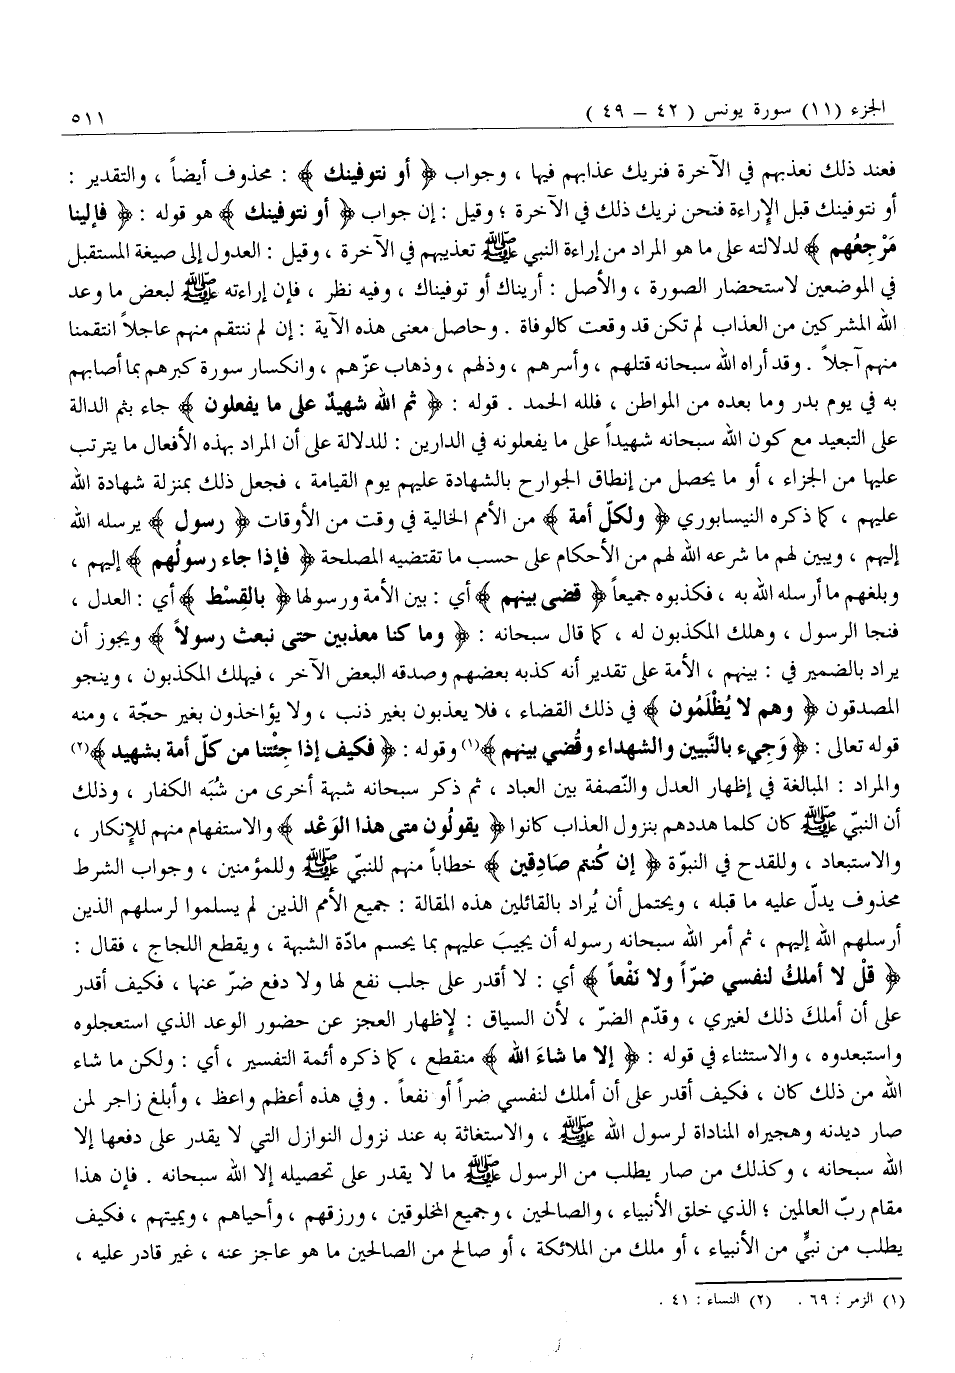 الجزء (١١) سورة يونس ( ٤٢ – ٤٩ )
٥١١
فعند ذلك نعذبهم في الآخرة فنريك عذابهم فيها ، وجواب ﴿ أو نتوفينك ﴾ : محذوف أيضاً ، والتقدير :
أو نتوفينك قبل الإراءة فنحن نريك ذلك في الآخرة ؛ وقيل : إن جواب ﴿ أو نتوفينك ﴾ هو قوله : ﴿ فإلينا
مَرْجِعُهم ﴾ لدلالته على ما هو المراد من إراءة النبي ﷺ تعذيبهم في الآخرة ، وقيل : العدول إلى صيغة المستقبل
في الموضعين لاستحضار الصورة ، والأصل : أريناك أو توفيناك ، وفيه نظر ، فإن إراءته ﷺ لبعض ما وعد
الله المشركين من العذاب لم تكن قد وقعت كالوفاة . وحاصل معنى هذه الآية : إن لم ننتقم منهم عاجلاً انتقمنا
منهم آجلاً . وقد أراه الله سبحانه قتلهم ، وأسرهم ، وذلهم ، وذهاب عزّهم ، وانكسار سورة كبرهم بما أصابهم
به في يوم بدر وما بعده من المواطن ، فلله الحمد . قوله : ﴿ ثم الله شهيدٌ على ما يفعلون ﴾ جاء بثم الدالة
على التبعيد مع كون الله سبحانه شهيداً على ما يفعلونه في الدارين : للدلالة على أن المراد بهذه الأفعال ما يترتب
عليها من الجزاء ، أو ما يحصل من إنطاق الجوارح بالشهادة عليهم يوم القيامة ، فجعل ذلك بمنزلة شهادة الله
عليهم ، كما ذكره النيسابوري ﴿ ولكلّ أمة ﴾ من الأمم الخالية في وقت من الأوقات ﴿ رسول ﴾ يرسله الله
إليهم ، ويبين لهم ما شرعه الله لهم من الأحكام على حسب ما تقتضيه المصلحة ﴿ فإذا جاء رسولُهم ﴾ إليهم ،
وبلغهم ما أرسله الله به ، فكذبوه جميعاً ﴿ قضى بينهم ﴾ أي : بين الأمة ورسولها ﴿ بالقِسْط ﴾ أي : العدل ،
فنجا الرسول ، وهلك المكذبون له ، كما قال سبحانه : ﴿ وما كنا معذبين حتى نبعث رسولاً ﴾ ويجوز أن
يراد بالضمير في : بينهم ، الأمة على تقدير أنه كذبه بعضهم وصدقه البعض الآخر ، فيهلك المكذبون ، وينجو
المصدقون ﴿ وهم لا يُظْلَمُون ﴾ في ذلك القضاء ، فلا يعذبون بغير ذنب ، ولا يؤاخذون بغير حجّة ، ومنه
قوله تعالى : ﴿ وَجِيء بالنَّبيين والشهداء وقُضي بينهم ﴾(١) وقوله : ﴿ فكيف إذا جِئْتنا من كلّ أمة بشهيد ﴾(٢)
والمراد : المبالغة في إظهار العدل والنّصفة بين العباد ، ثم ذكر سبحانه شبهة أخرى من شُبَه الكفار ، وذلك
أن النبيّ ﷺ كان كلما هددهم بنزول العذاب كانوا ﴿ يقولُون متى هذا الوَعْد ﴾ والاستفهام منهم للإنكار ،
والاستبعاد ، وللقدح في النبوّة ﴿ إن كُنتم صادِقين ﴾ خطاباً منهم للنبيّ ﷺ وللمؤمنين ، وجواب الشرط
محذوف يدلّ عليه ما قبله ، ويحتمل أن يُراد بالقائلين هذه المقالة : جميع الأمم الذين لم يسلموا لرسلهم الذين
أرسلهم الله إليهم ، ثم أمر الله سبحانه رسوله أن يجيبَ عليهم بما يحسم مادّة الشبهة ، ويقطع اللجاج ، فقال :
﴿ قلْ لا أملكُ لنفسي ضرّاً ولا نَفْعاً ﴾ أي : لا أقدر على جلب نفع لها ولا دفع ضرّ عنها ، فكيف أقدر
على أن أملكَ ذلك لغيري ، وقدّم الضرّ ، لأن السياق : لإظهار العجز عن حضور الوعد الذي استعجلوه
واستبعدوه ، والاستثناء في قوله : ﴿ إلا ما شاءَ الله ﴾ منقطع ، كما ذكره أئمة التفسير ، أي : ولكن ما شاء
الله من ذلك كان ، فكيف أقدر على أن أملك لنفسي ضراً أو نفعاً . وفي هذه أعظم واعظ ، وأبلغ زاجر لمن
صار ديدنه وهجيراه المناداة لرسول الله ﷺ ، والاستغاثة به عند نزول النوازل التي لا يقدر على دفعها إلا
الله سبحانه ، وكذلك من صار يطلب من الرسول ﷺ ما لا يقدر على تحصيله إلا الله سبحانه . فإن هذا
مقام ربّ العالمين ؛ الذي خلق الأنبياء ، والصالحين ، وجميع المخلوقين ، ورزقهم ، وأحياهم ، ويميتهم ، فكيف
يطلب من نبيٍّ من الأنبياء ، أو ملك من الملائكة ، أو صالح من الصالحين ما هو عاجز عنه ، غير قادر عليه ،
(١) الزمر : ٦٩ . (٢) النساء : ٤١ .